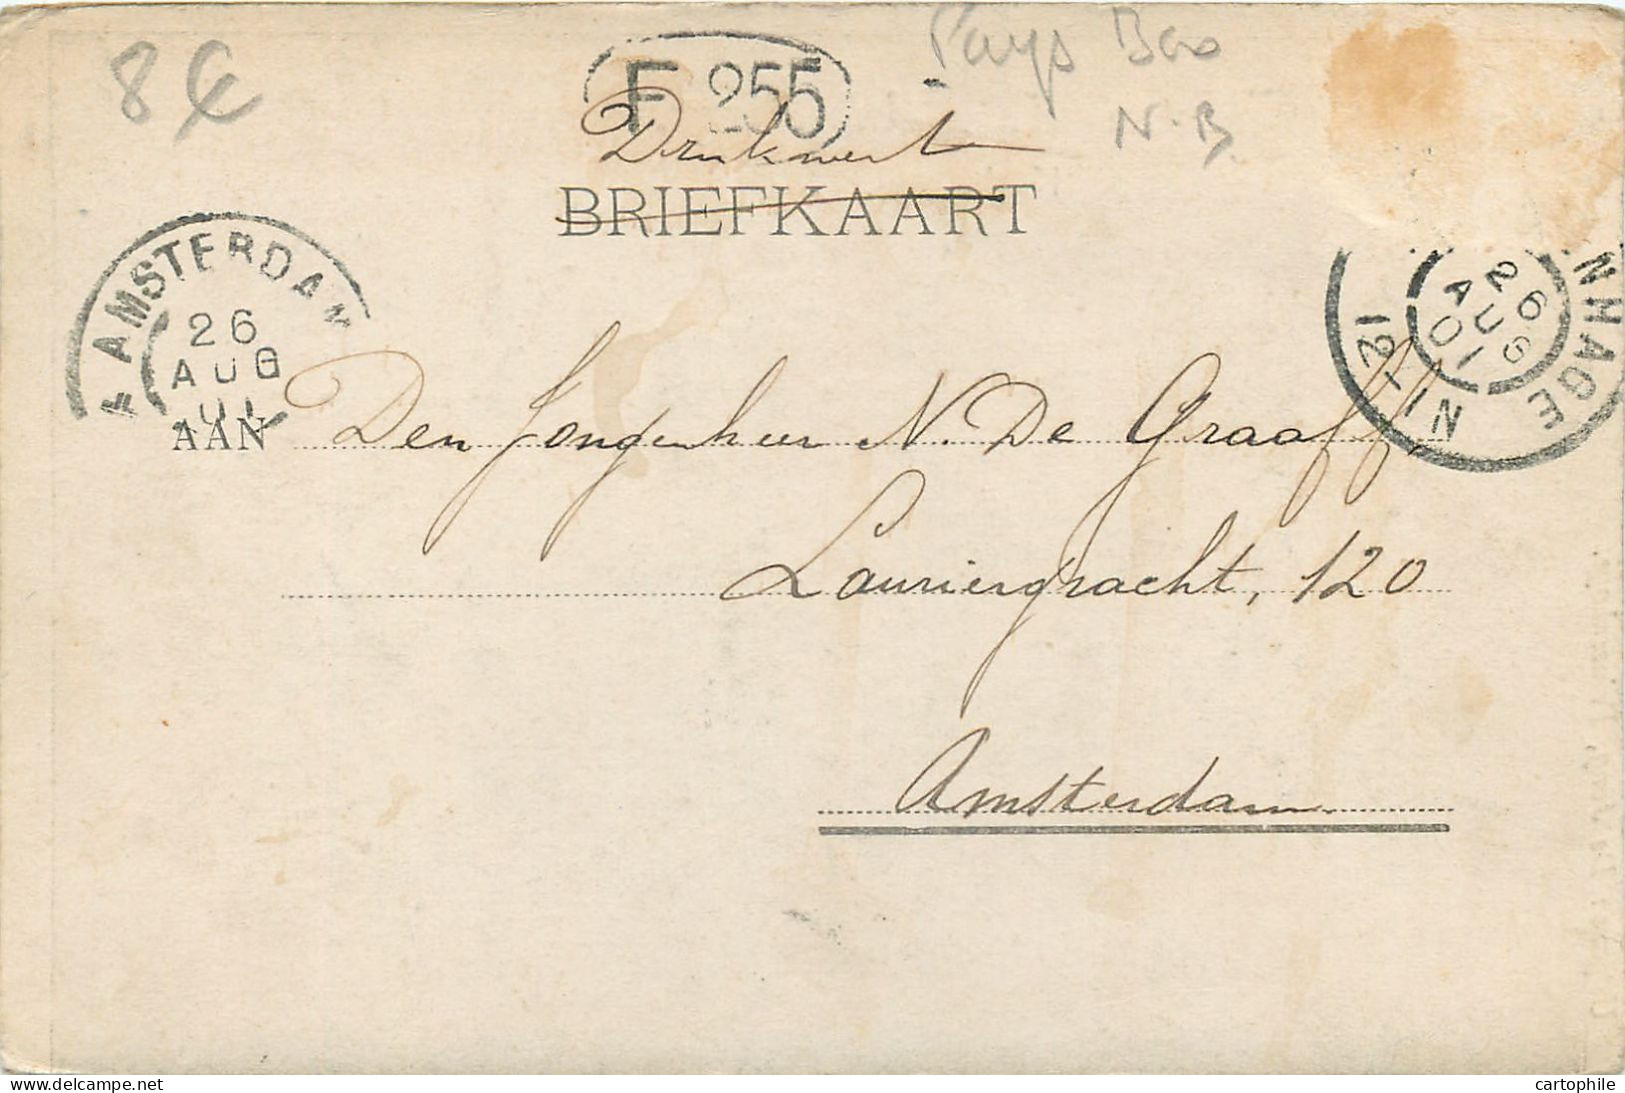 8 €
F 255
Pays Bas
N.B
Drukwerk
BRIEFKAART
AMSTERDAM
26
AUG
01
NHAGE
26
AUG
01
12-1N
AAN Den Jongenheer N. De Graaff,
Lauriergracht, 120
Amsterdam.
delcampe.net
cartophile